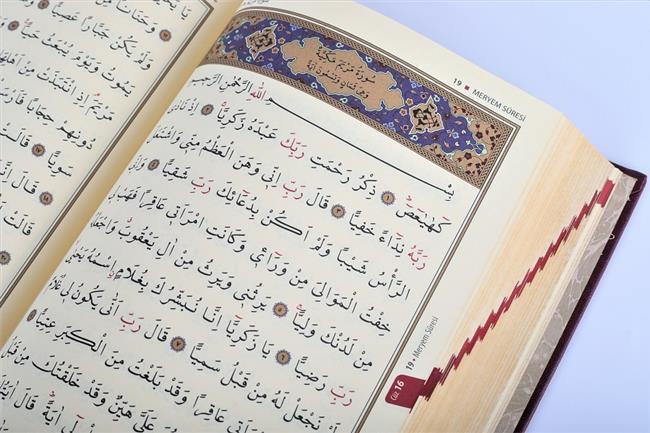 19 • MERYEM SÛRESİ
سُورَةُ مَرْيَمَ مَكِّيَّةٌ
وَهِيَ ثَمَانٍ وَتِسْعُونَ اٰيَةً
بِسْمِ اللّٰهِ الرَّحْمٰنِ الرَّحِيمِ
كٓهٰيٰعٓصٓ ﴿١﴾ ذِكْرُ رَحْمَتِ رَبِّكَ عَبْدَهُ زَكَرِيَّا ﴿٢﴾ اِذْ نَادٰى
رَبَّهُ نِدَٓاءً خَفِيًّا ﴿٣﴾ قَالَ رَبِّ اِنّ۪ي وَهَنَ الْعَظْمُ مِنّ۪ي وَاشْتَعَلَ
الرَّأْسُ شَيْبًا وَلَمْ اَكُنْ بِدُعَٓائِكَ رَبِّ شَقِيًّا ﴿٤﴾ وَاِنّ۪ي
خِفْتُ الْمَوَالِيَ مِنْ وَرَٓاء۪ي وَكَانَتِ امْرَاَت۪ي عَاقِرًا فَهَبْ ل۪ي
مِنْ لَدُنْكَ وَلِيًّا ﴿٥﴾ يَرِثُن۪ي وَيَرِثُ مِنْ اٰلِ يَعْقُوبَ وَاجْعَلْهُ
رَبِّ رَضِيًّا ﴿٦﴾ يَا زَكَرِيَّٓا اِنَّا نُبَشِّرُكَ بِغُلَامٍ اِسْمُهُ يَحْيٰى
لَمْ نَجْعَلْ لَهُ مِنْ قَبْلُ سَمِيًّا ﴿٧﴾ قَالَ رَبِّ اَنّٰى يَكُونُ ل۪ي غُلَامٌ
عَاقِرًا وَقَدْ بَلَغْتُ مِنَ الْكِبَرِ عِتِيًّا
عَلَيَّ هَيِّنٌ وَقَدْ خَلَقْتُكَ مِنْ قَبْلُ
اٰيَةً قَالَ
Cüz 16
19 • Meryem Sûresi
وَحَنَانًا مِنْ
وَلَمْ يَكُنْ جَبَّارًا عَصِيًّا
يَمُوتُ وَيَوْمَ يُبْعَثُ حَيًّا
مَرْيَمَ اِذِ انْتَبَذَتْ مِنْ اَهْلِهَا
دُونِهِمْ حِجَابًا
سَوِيًّا ﴿١٧﴾ قَالَتْ
﴿١٨﴾ قَالَ
قَالَتْ